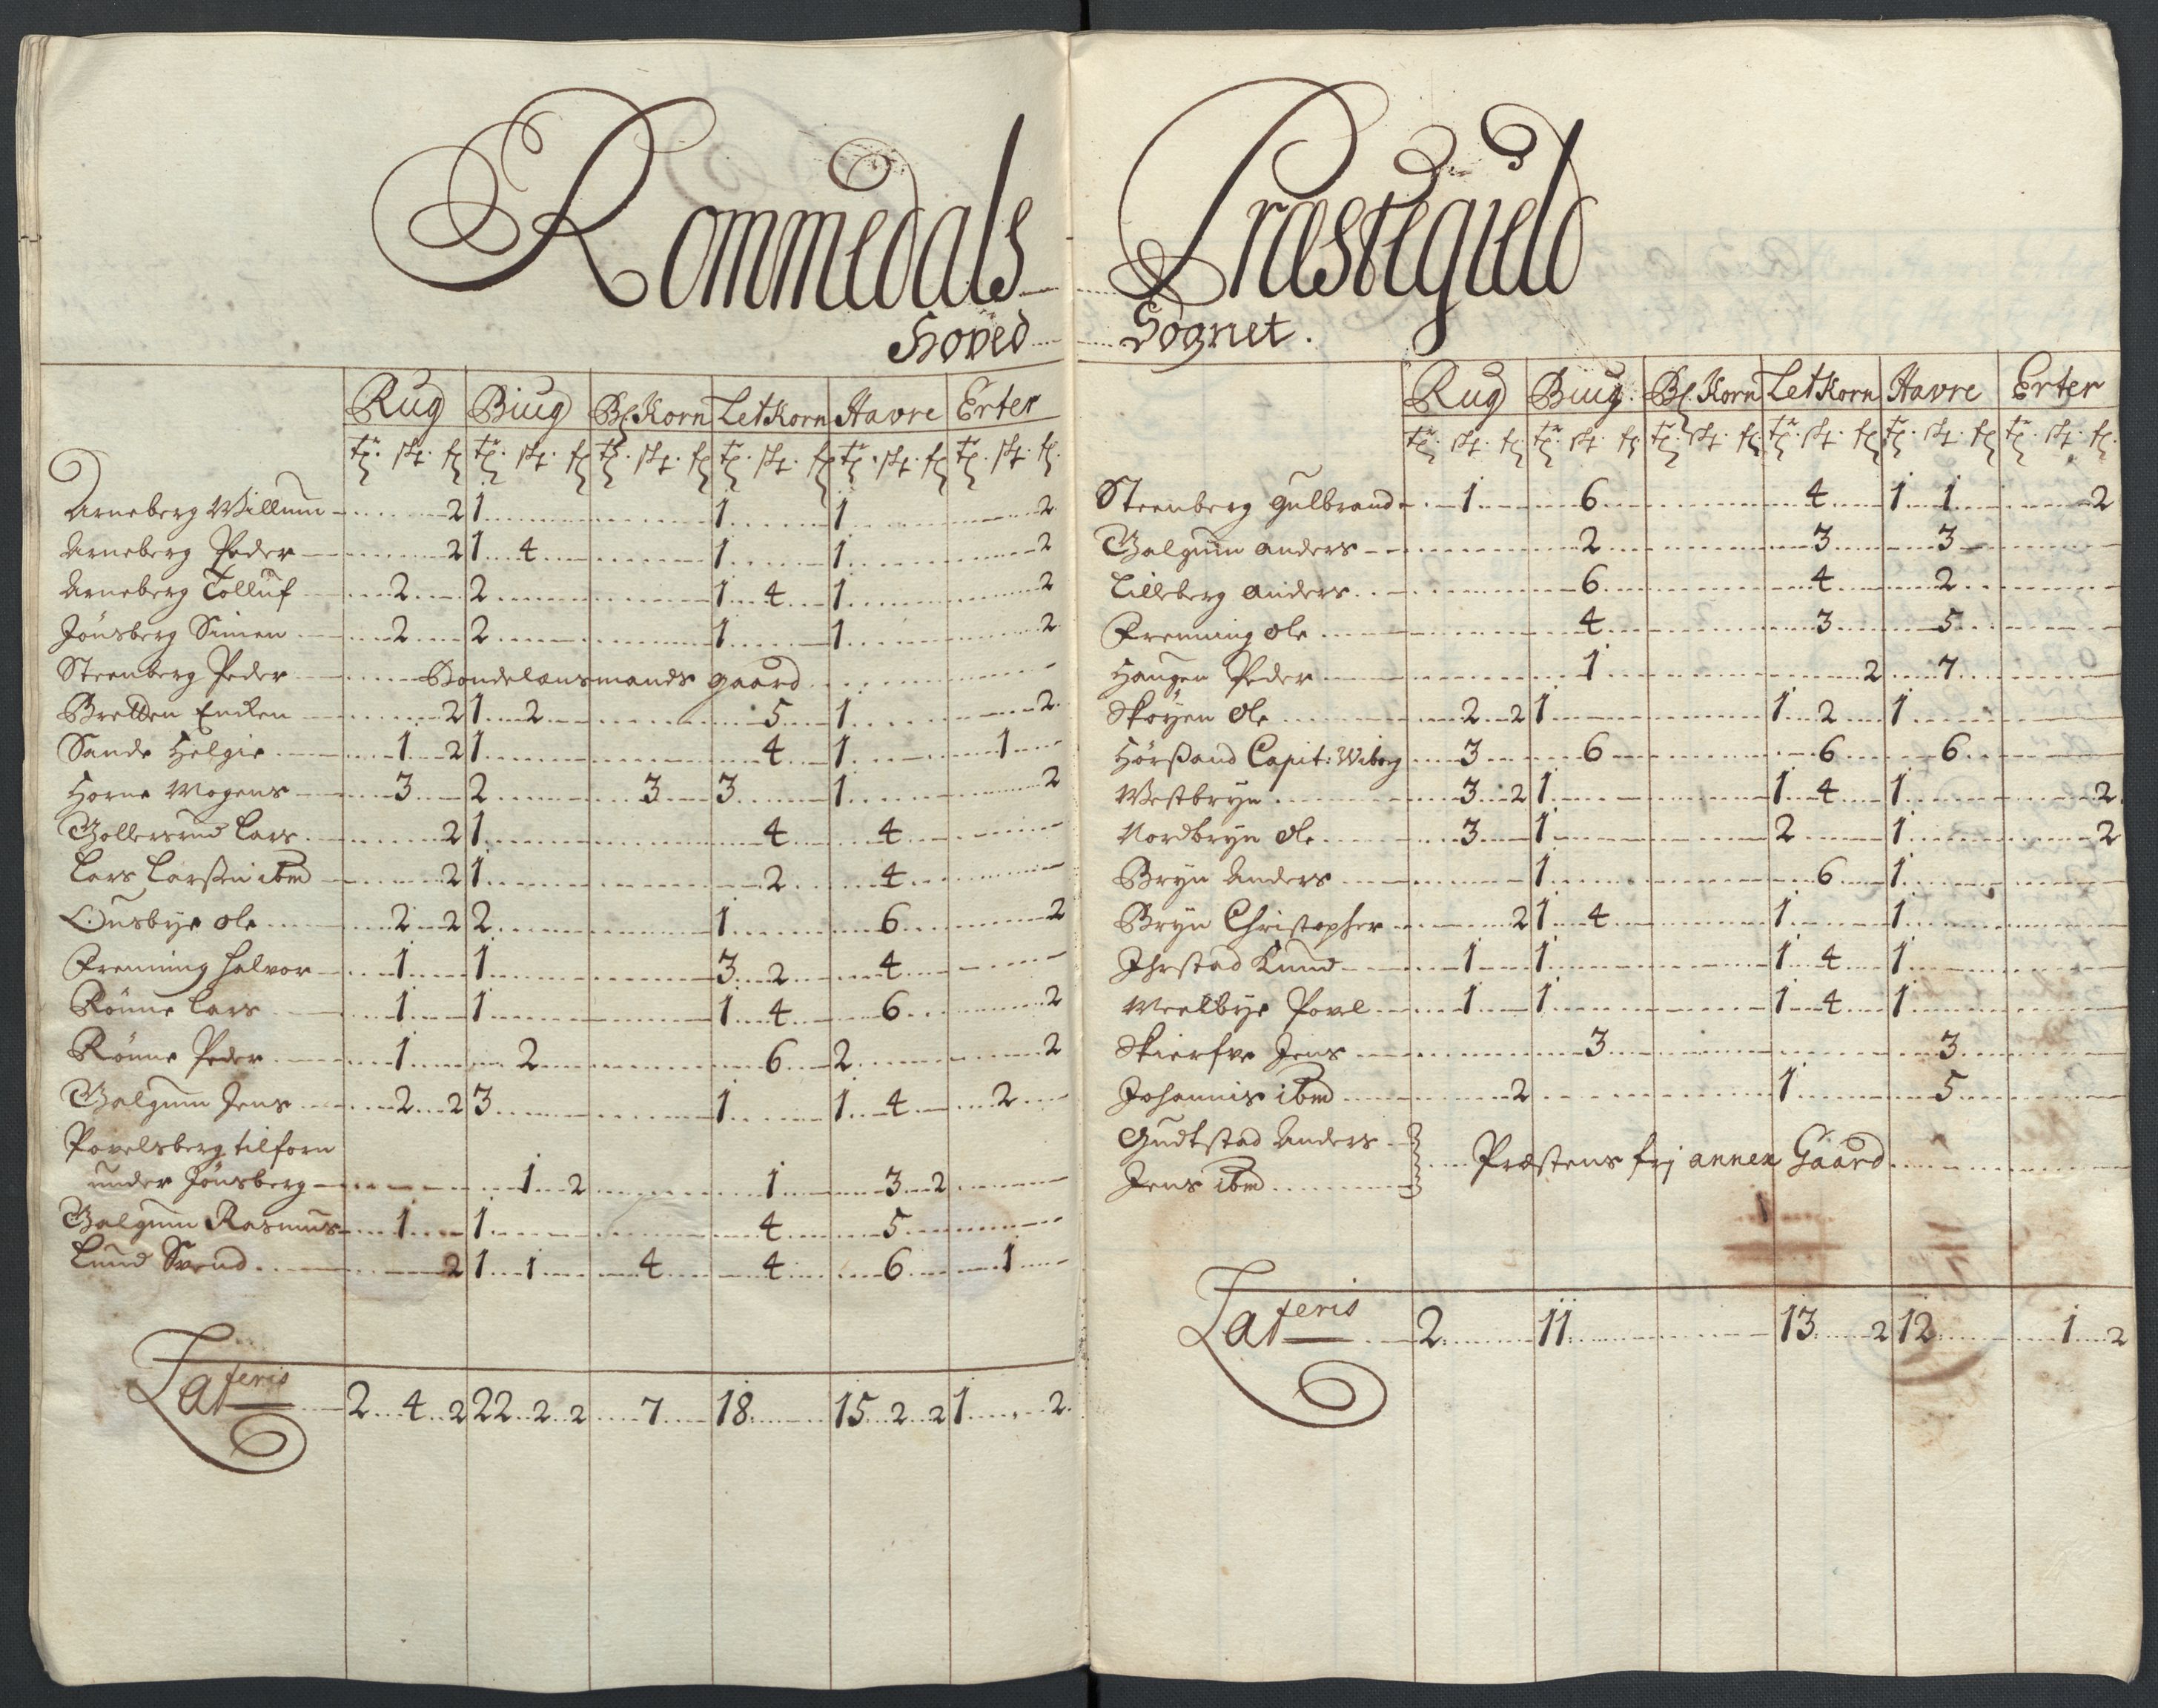 Rommedals Præstegield
Hoved Sognet.
Rug Biug Bl. Korn Let Korn Havre Erter
Arneberg Willum 2 1 1 1 2
Arneberg Peder 2 1 4 1 1 2
Arneberg Tolluf 2 2 1 4 1 2
Jönsberg Simen 2 2 1 1 2
Steenberg Peder Bondelensmands gaard
Bretten Encken 2 1 2 5 1 2
Sande Helgie 1 2 1 4 1 1
Horne Mogens 3 2 3 3 1 2
Lars 2 1 4 4
Lars Larßen ibm 2 1 2 4
Ousbye ole 2 2 2 1 6 2
Frenning Halvor 1 1 3 2 4
Rönne Lars 1 1 1 4 6 2
Rönne Peder 1 2 6 2 2
Galgum Jens 2 2 3 1 1 4 2
Povelsberg tilforn
under Jönsberg 1 2 1 3 2
Galgum Rasmus 1 1 4 5
Lund Svend 2 1 1 4 4 6 1
Lateris 2 4 2 22 2 2 7 18 15 2 2 1 2
Rug Biug Bl. Korn Let Korn Havre Erter
Steenberg Gulbrand 1 6 4 1 1 2
Galgum Anders 2 3 3
Lilleberg Anders 6 4 2
Frenning Ole 4 3 5
Haugen Peder 1 2 7
Skøyen Ole 2 2 1 1 2 1
Hörßand Capit: Wiborg 3 6 6 6
Westbryn 3 2 1 1 4 1 2
Nordbryn Ole 3 1 2 1 2
Bryn Anders 1 6 1
Bryn Christopher 2 1 4 1 1
Ihrstad Knud 1 1 1 4 1
Meelbye Povel 1 1 1 4 1
Skierfve Jens 3 3
Johannis ibm 2 1 5
Gudkstad Anders
Jens ibm Præstens frj annex Gaard
Lateris 2 11 13 2 12 1 2